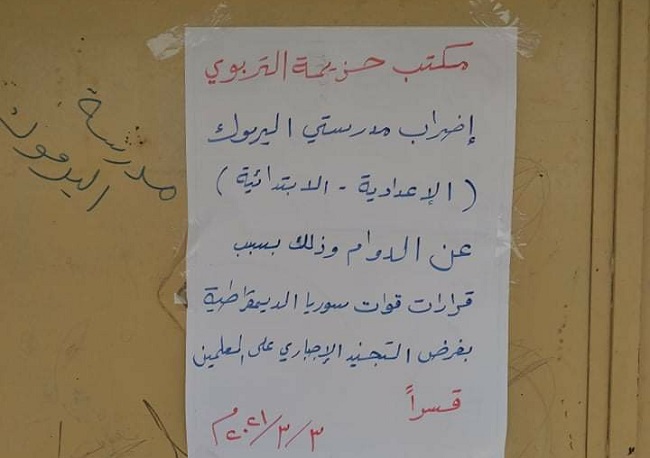 مكتب حزيمة التربوي
إضراب مدرستي اليرموك
(الإعدادية - الابتدائية)
عن الدوام وذلك بسبب
قرارات قوات سوريا الديمقراطية
بفرض التجنيد الإجباري على المعلمين
قسراً
٣/٣/٢٠٢١م
مدرسة
اليرموك